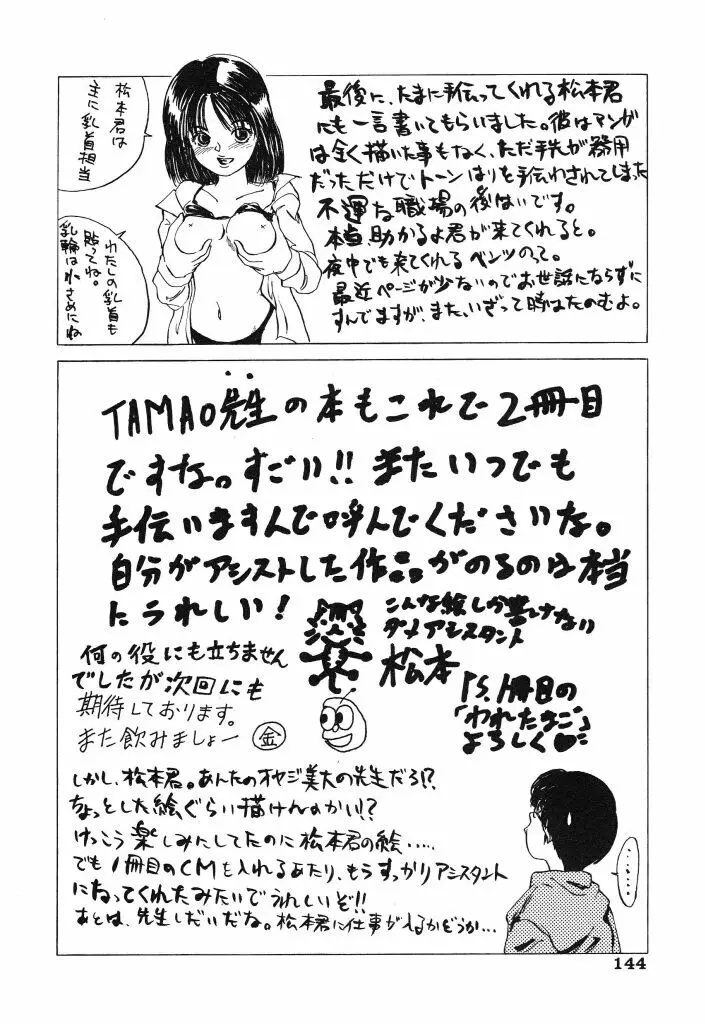 最後に、たまに手伝ってくれる松本君
にも一言書いてもらいました。彼はマンガ
は全く描いた事もなく、ただ手先が器用
だっただけでトーンはりを手伝わされてしまった
不運な職場の後はいです。
本当助かるよ君が来てくれると。
夜中でも来てくれるベンツのって。
最近ページが少ないのでお世話にならずに
すんでますが、また、いざって時はたのむよ。
松本君は
主に乳首担当
わたしの乳首も
貼ってね。
乳輪は小さめにね
TAMAO先生の本もこれで2冊目
ですな。すごい!!またいつでも
手伝いますんで呼んでくださいな。
自分がアシストした作品がのるのは本当
にうれしい!
こんな絵しか書けない
ダメアシスタント
松本
PS.1冊目の
「われたまご」
よろしく♥
何の役にも立ちません
でしたが次回にも
期待しております。
また飲みましょー
金
しかし、松本君。あんたのオヤジ美大の先生だろ!?
ちょっとした絵ぐらい描けんのかい!?
けっこう楽しみにしてたのに松本君の絵……
でも1冊目のCMを入れるあたり、もうすっかりアシスタント
になってくれたみたいでうれしいぞ!!
あとは、先生しだいだな。松本君に仕事が入るかどうか…
144